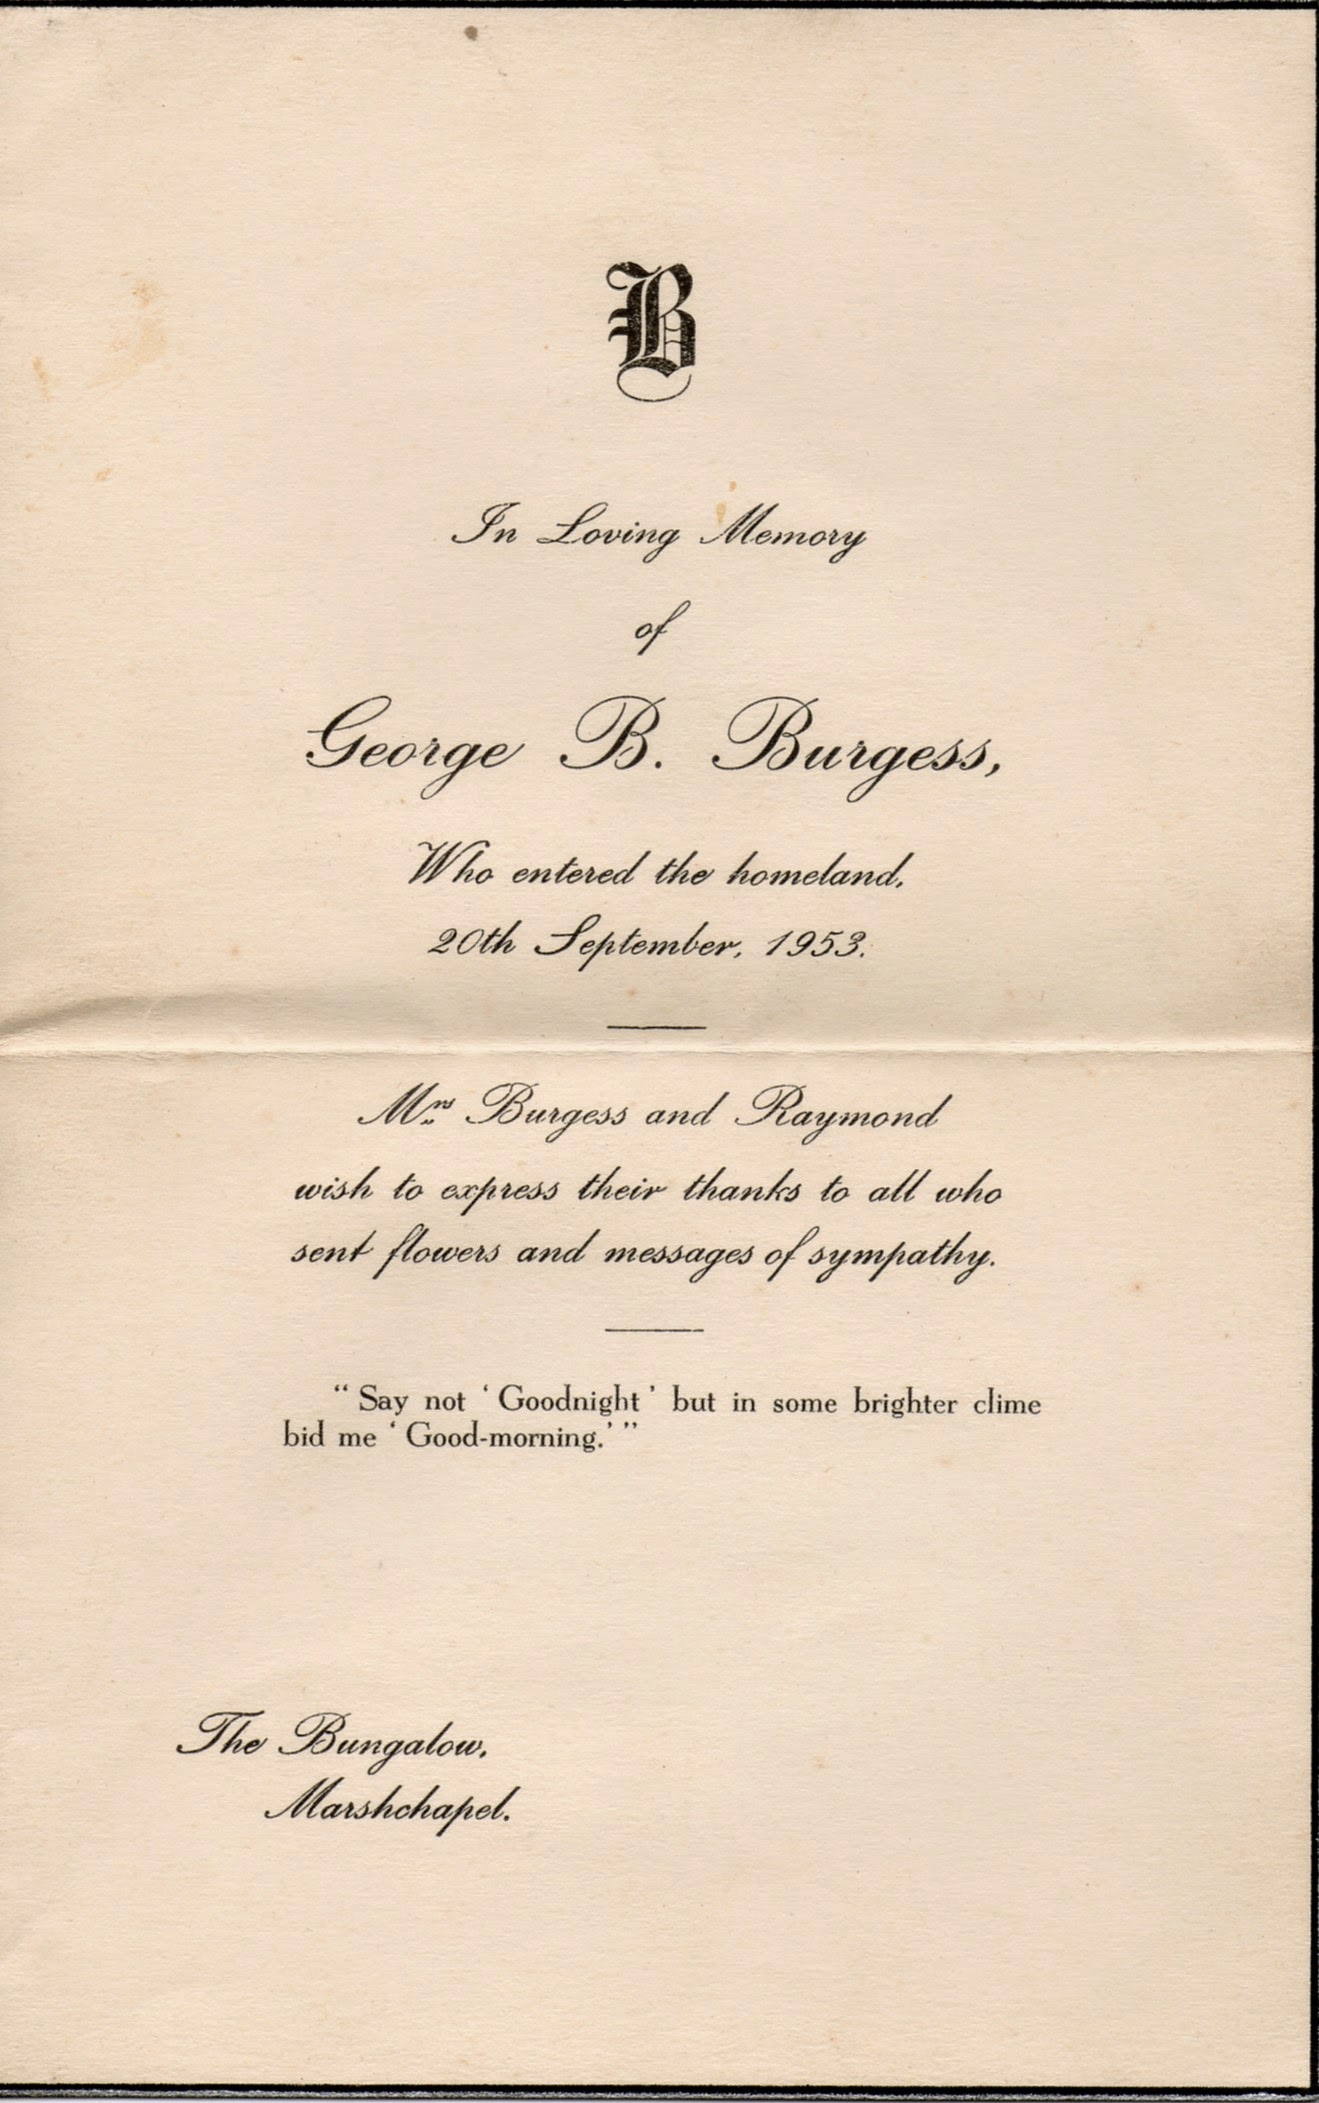 B
In Loving Memory
of
George B. Burgess,
Who entered the homeland,
20th September, 1953.
Mrs Burgess and Raymond
wish to express their thanks to all who
sent flowers and messages of sympathy.
“ Say not ‘ Goodnight ’ but in some brighter clime
bid me ‘ Good-morning.’ ”
The Bungalow,
Marshchapel.